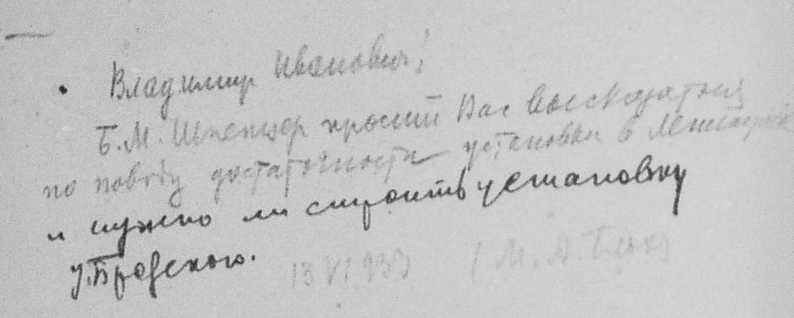 Владимир Иванович!
Б.М. Шпенцер просит Вас высказаться
по поводу достаточности установки в Ленинграде
и нужно ли строить установку
у Бродского.
13 VI 939 / М. А. Блох